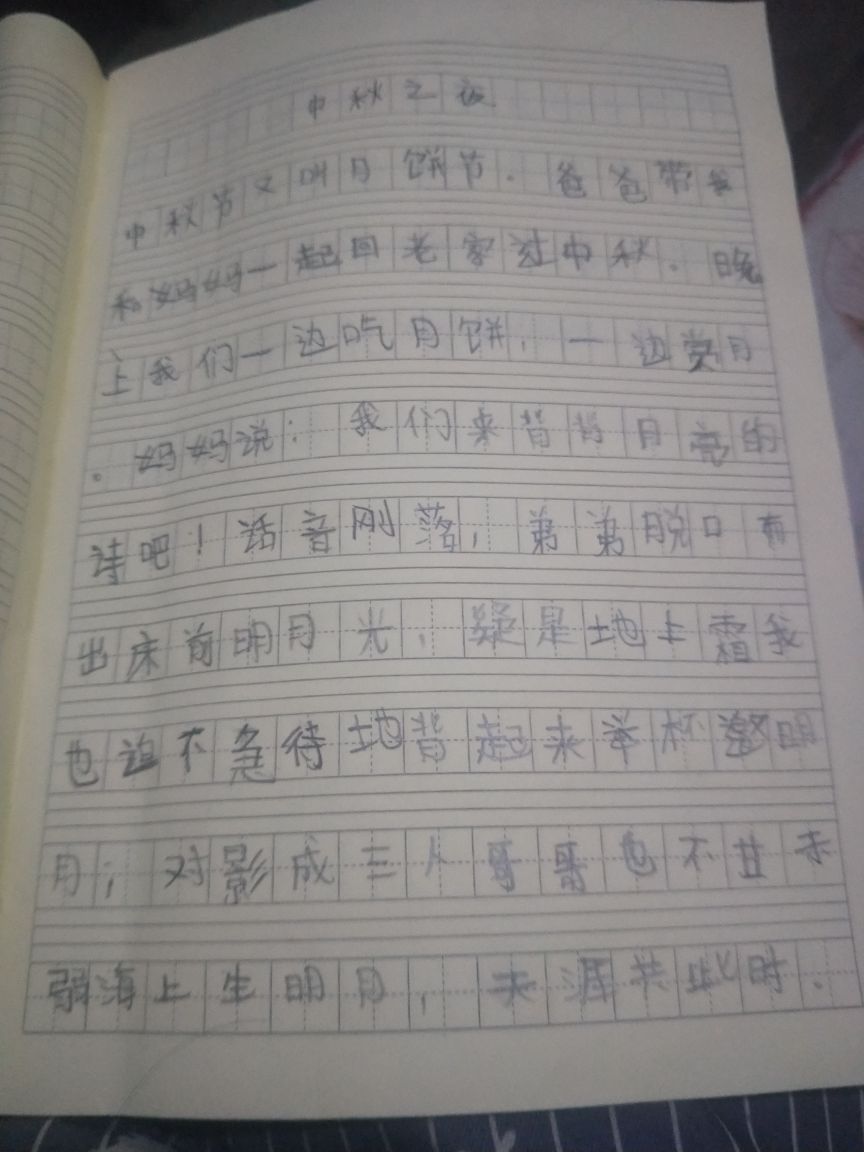 中秋之夜
中秋节又叫月饼节。爸爸带我
和妈妈一起回老家过中秋。晚
上我们一边吃月饼，一边赏月
。妈妈说：我们来背背月亮的
诗吧！话音刚落，弟弟脱口而
出床前明月光，疑是地上霜我
也迫不急待地背起来举杯邀明
月，对影成三人哥哥也不甘示
弱海上生明月，天涯共此时.